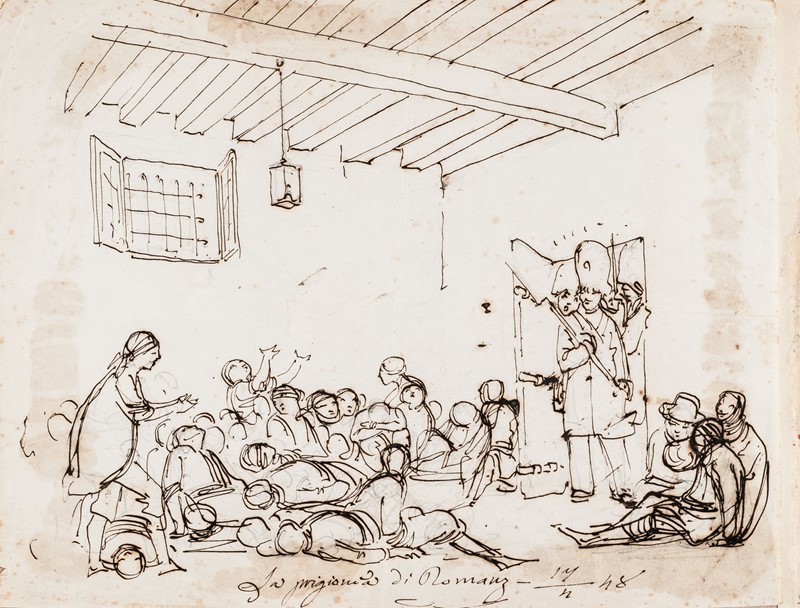 La prigionia di Romanz – 17/4 – 48